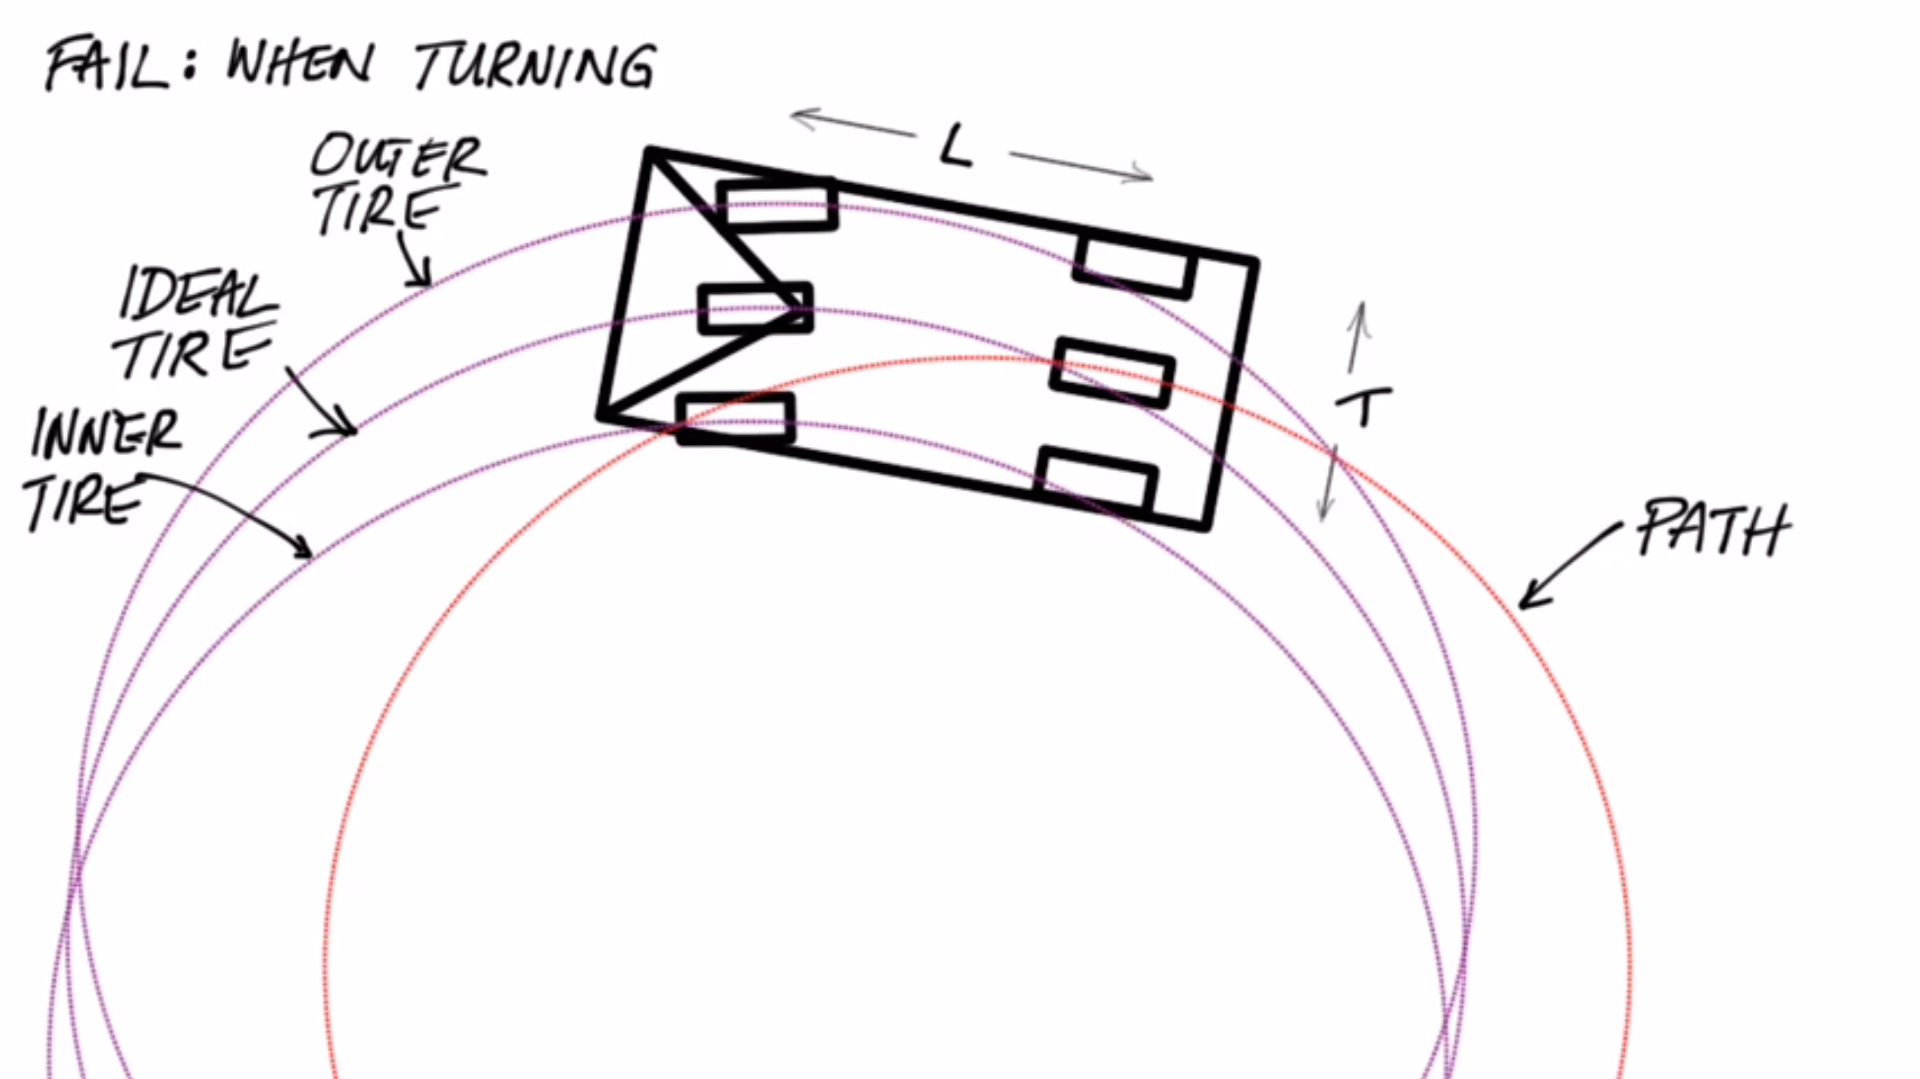 FAIL: WHEN TURNING
L
OUTER
TIRE
IDEAL
TIRE
INNER
TIRE
T
PATH